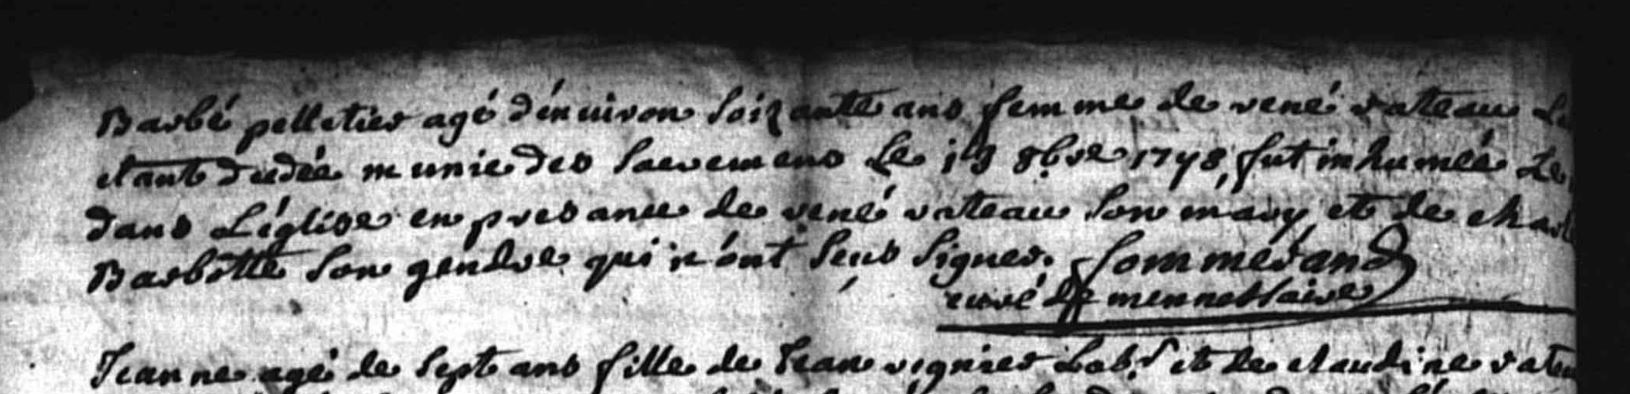 Barbé pelletier agé d'énuiron soixante ans femme de rené rateau
etant décédée munie des sacremens Le 19 8bre 1748, fut inhumée Le
dans L'église en presance de rené rateau son mary et de charl
Barbotte son gendre qui n'ont seus signer. Sommérand
curé de mennessaire
Jeanne agé de sept ans fille de Jean vignier Lab.r et de claudine rateu